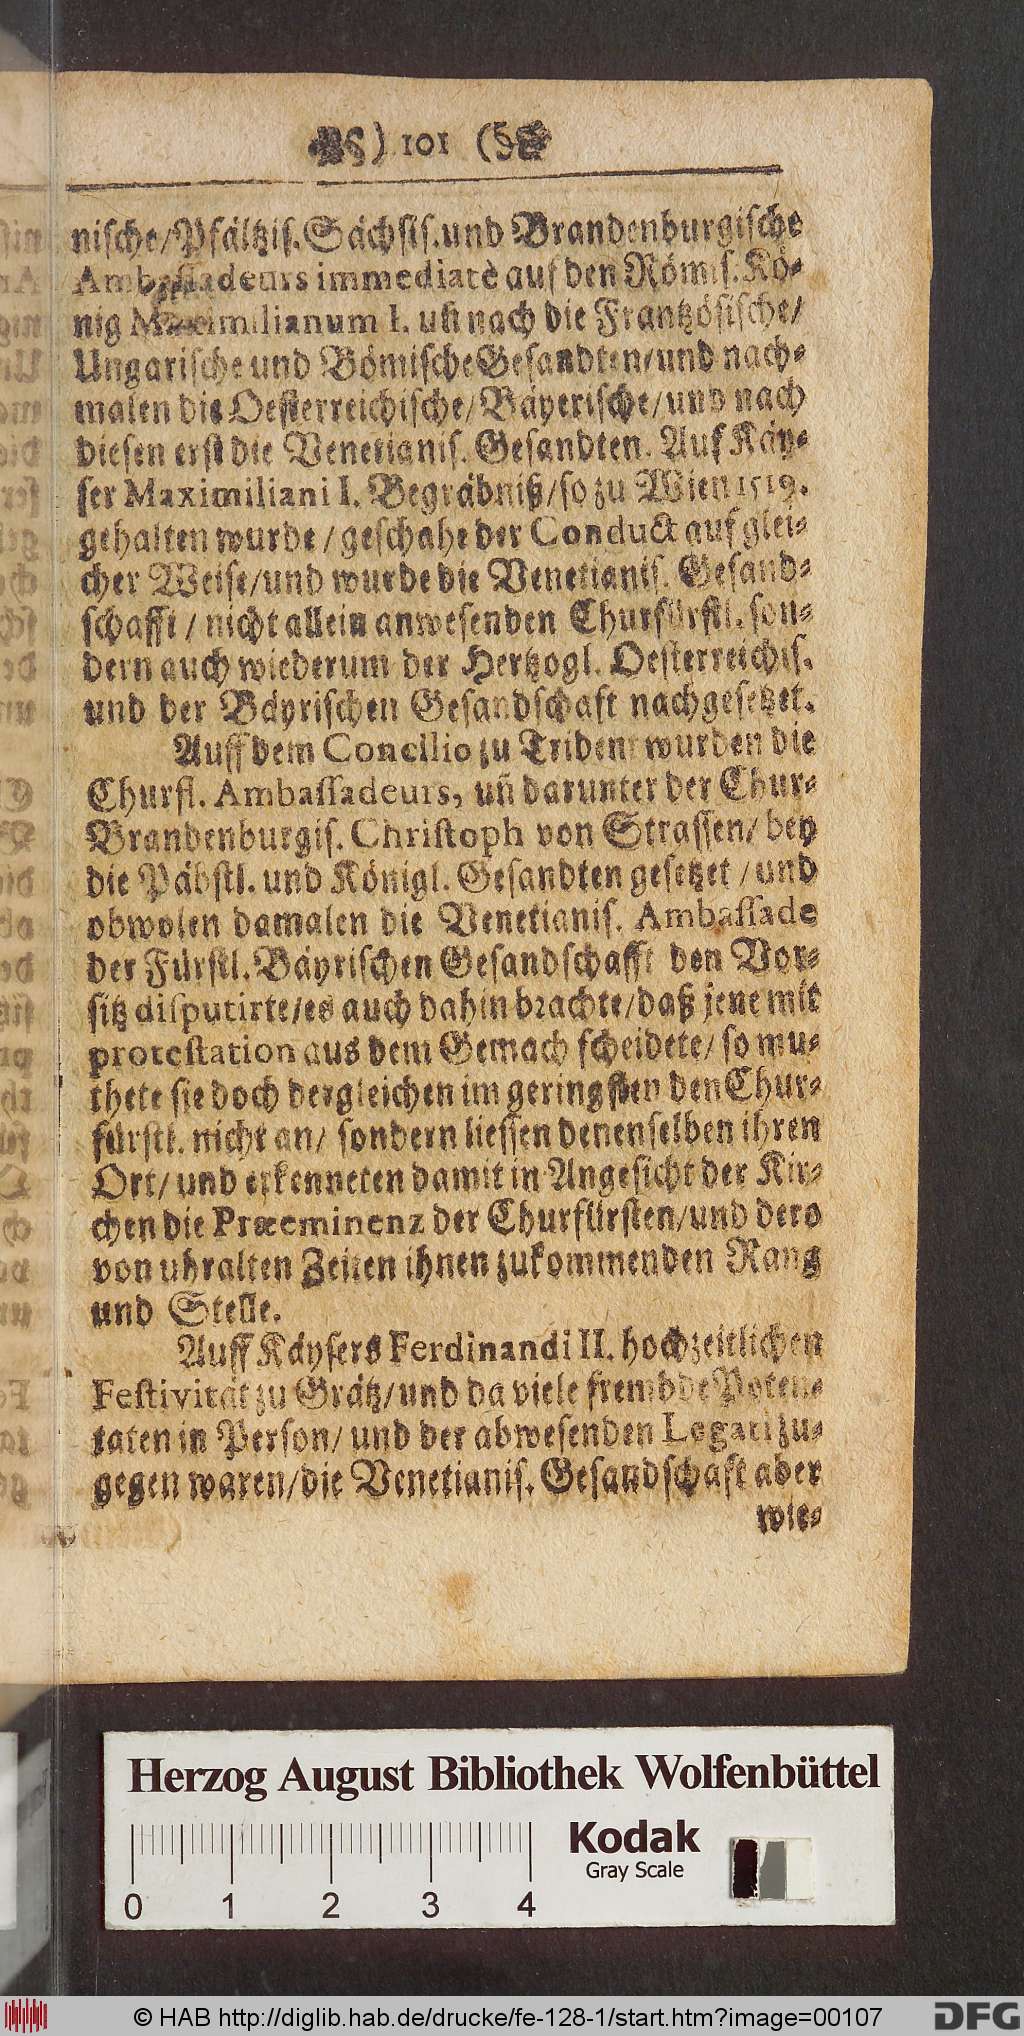 ) 101 (
nische/Pfältzis. Sächsis. und Brandenburgische
Ambassadeurs immediatè auf den Römis. Kö-
nig Maximilianum I. uñ nach die Frantzösische/
Ungarische und Bömische Gesandten/und nach-
malen die Oesterreichische/Bäyerische/und nach
diesen erst die Venetianis. Gesandten. Auf Käy-
ser Maximiliani I. Begräbniß/so zu Wien 1519.
gehalten wurde/geschahe der Conduct auf glei-
cher Weise/und wurde die Venetianis. Gesand-
schafft/nicht allein anwesenden Churfürstl. son-
dern auch wiederum der Hertzogl. Oesterreichis.
und der Bäyrischen Gesandschaft nachgesetzet.
Auff dem Concilio zu Trident wurden die
Churfl. Ambassadeurs, uñ darunter der Chur-
Brandenburgis. Christoph von Strassen/bey
die Päbstl. und Königl. Gesandten gesetzet/und
obwolen damalen die Venetianis. Ambassade
der Fürstl. Bäyrischen Gesandschafft den Vor-
sitz disputirte/es auch dahin brachte/daß jene mit
protestation aus dem Gemach scheidete/so mu-
thete sie doch dergleichen im geringsten den Chur-
fürstl. nicht an/sondern liessen denenselben ihren
Ort/und erkenneten damit in Angesicht der Kir-
chen die Præeminenz der Churfürsten/und dero
von uhralten Zeiten ihnen zukommenden Rang
und Stelle.
Auff Käysers Ferdinandi II. hochzeitlichen
Festivität zu Grätz/und da viele frembde Poten-
taten in Person/und der abwesenden Legati zu-
gegen waren/die Venetianis. Gesandschaft aber
wie-
Herzog August Bibliothek Wolfenbüttel
Kodak
Gray Scale
0 1 2 3 4
© HAB http://diglib.hab.de/drucke/fe-128-1/start.htm?image=00107
DFG